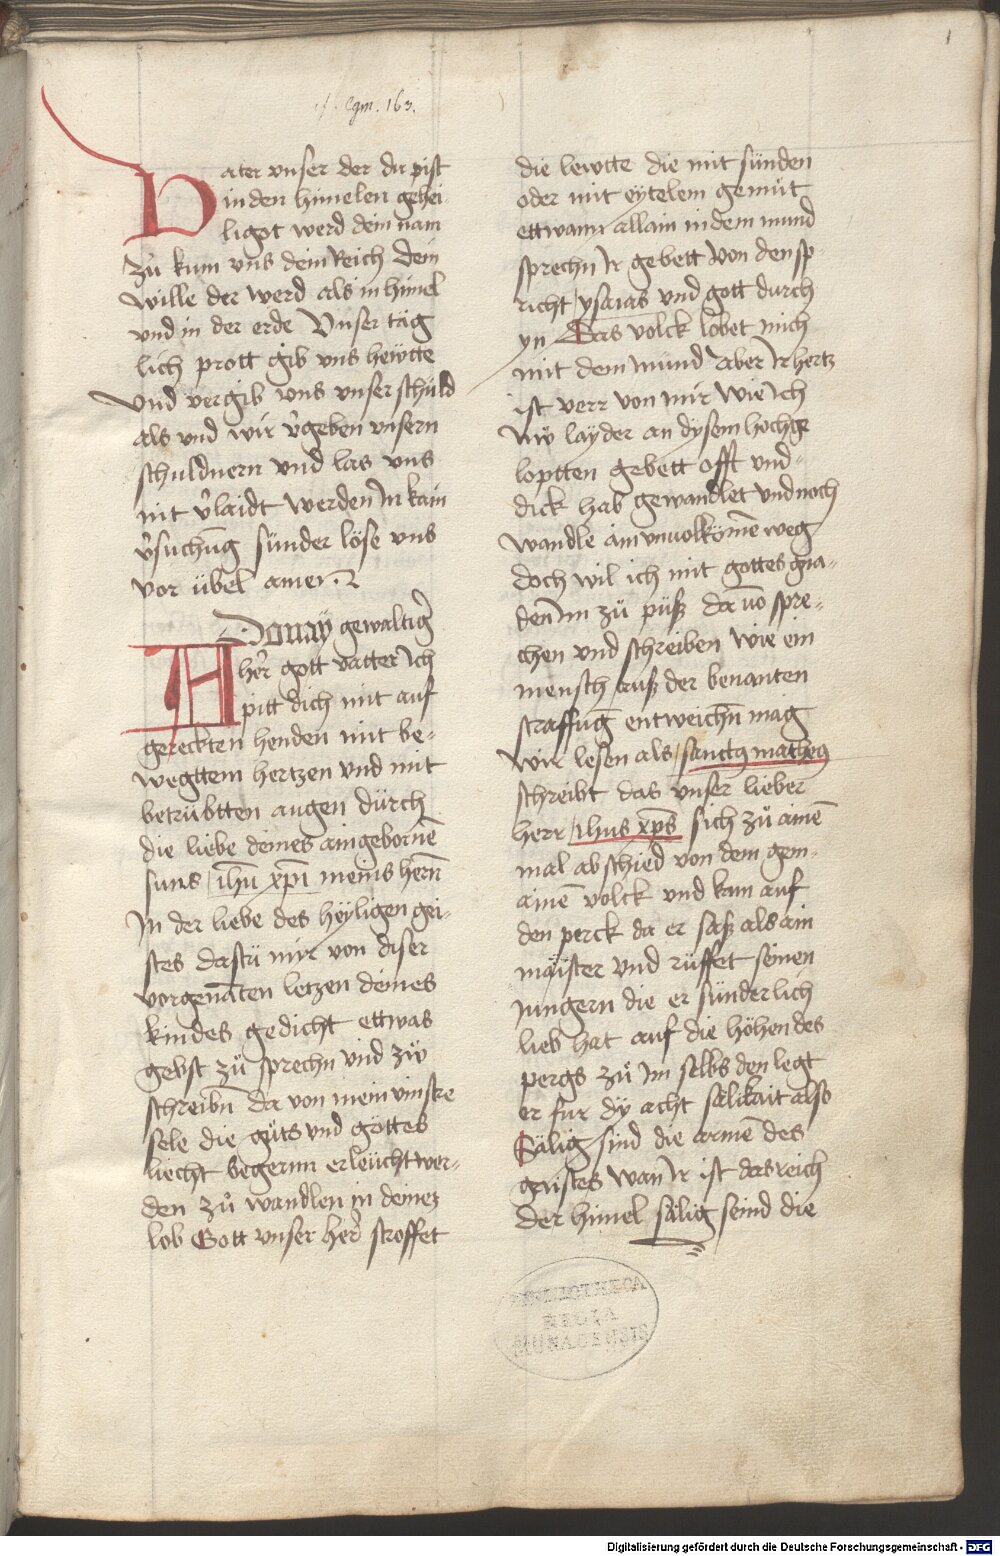 1
cf. Cgm. 163.
Vater vnser der du pist
in den himelen gehei
ligot werd dein nam
Zu kum vns dein Reich Dein
wille der werd als in himel
vnd in der erde Vnser täg
lich prott gib vns hewtte
Vnd vergib vns vnser schuld
als vnd wir v̄geben vnsern
schuldnern vnd las vns
nit v̄laidt werden In kain
v̄suchūg sünder löse vns
vor übel amen
ADonay gewaltig̃
her̃ gott vatter Ich
pitt dich mit auf
gereckten henden mit be-
wegttem hertzen vnd mit
betrübtten augen dürch
die liebe deines aingeborne͂
suns ih̄u xp̄i meins her̄n
In der liebe des heyligen gei-
stes dastu mir von diser
vorgena̅ten letzen deines
kindes gedicht ettwas
gebst zů sprechn vnd zů
schreibn̄ da von mein vinstre
sele die guts vnd göttes
liecht begernn erleücht wer-
den zů wandlen in deinez
lob Gott vnser her̃ stroffet
die lewtte die mit sünden
oder mit eyttelem gemüt
ettwann allain in dem mund
sprechn Ir gebett Von den sp
richt ysaias vnd gott durch
yn Das volck lobet mich
mit dem mund Aber Ir hertz
ist verr von mir Wie Ich
nw layder an dysem hochge
loptten gebett offt vnd
dick hab gewandlet vnd noch
wandle ain vnuolkōmē weg
doch wil ich mit gottes gna-
den Im zů püß da vō spre-
chen vnd schreiben wie ein
mensch auß der benanten
straffūg entweichn̄ mag
Wir lesen als sanctꝰ matheꝰ
schreibt das vnser lieber
herr ih̄us xp̄s sich zů aine͂
mal abschied von dem gem-
aine͂ volck vnd kam auf
den perck da er saß als ain
maister vnd rüffet seinen
Jungern die er sünderlich
lieb hat auf die höhen des
pergs zů Im selbs den legt
er für dy acht sälikait also
Sälig sind die arme͂ des
geistes wan Ir ist das reich
der himel sälig seind die
BIBLIOTHECA
REGIA
MONACENSIS
Digitalisierung gefördert durch die Deutsche Forschungsgemeinschaft - DFG